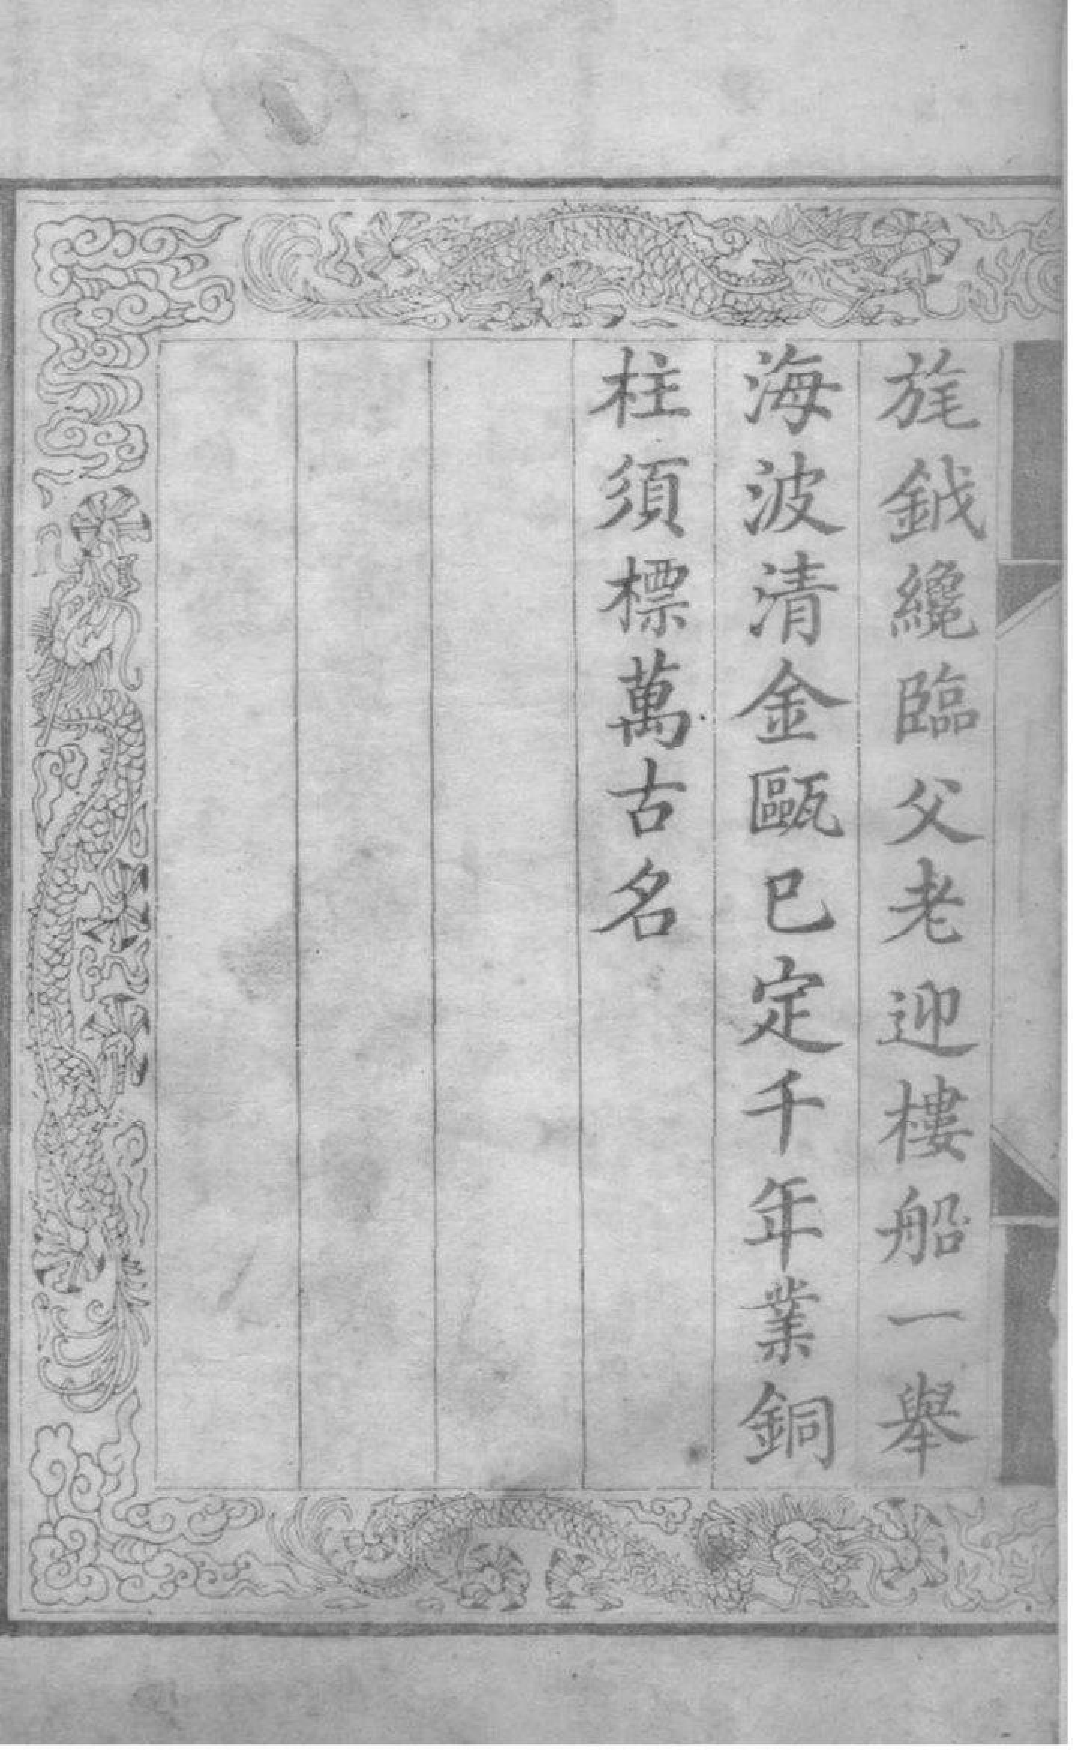 旄鉞纔臨父老迎樓船一舉
海波清金甌已定千年業銅
柱須標萬古名